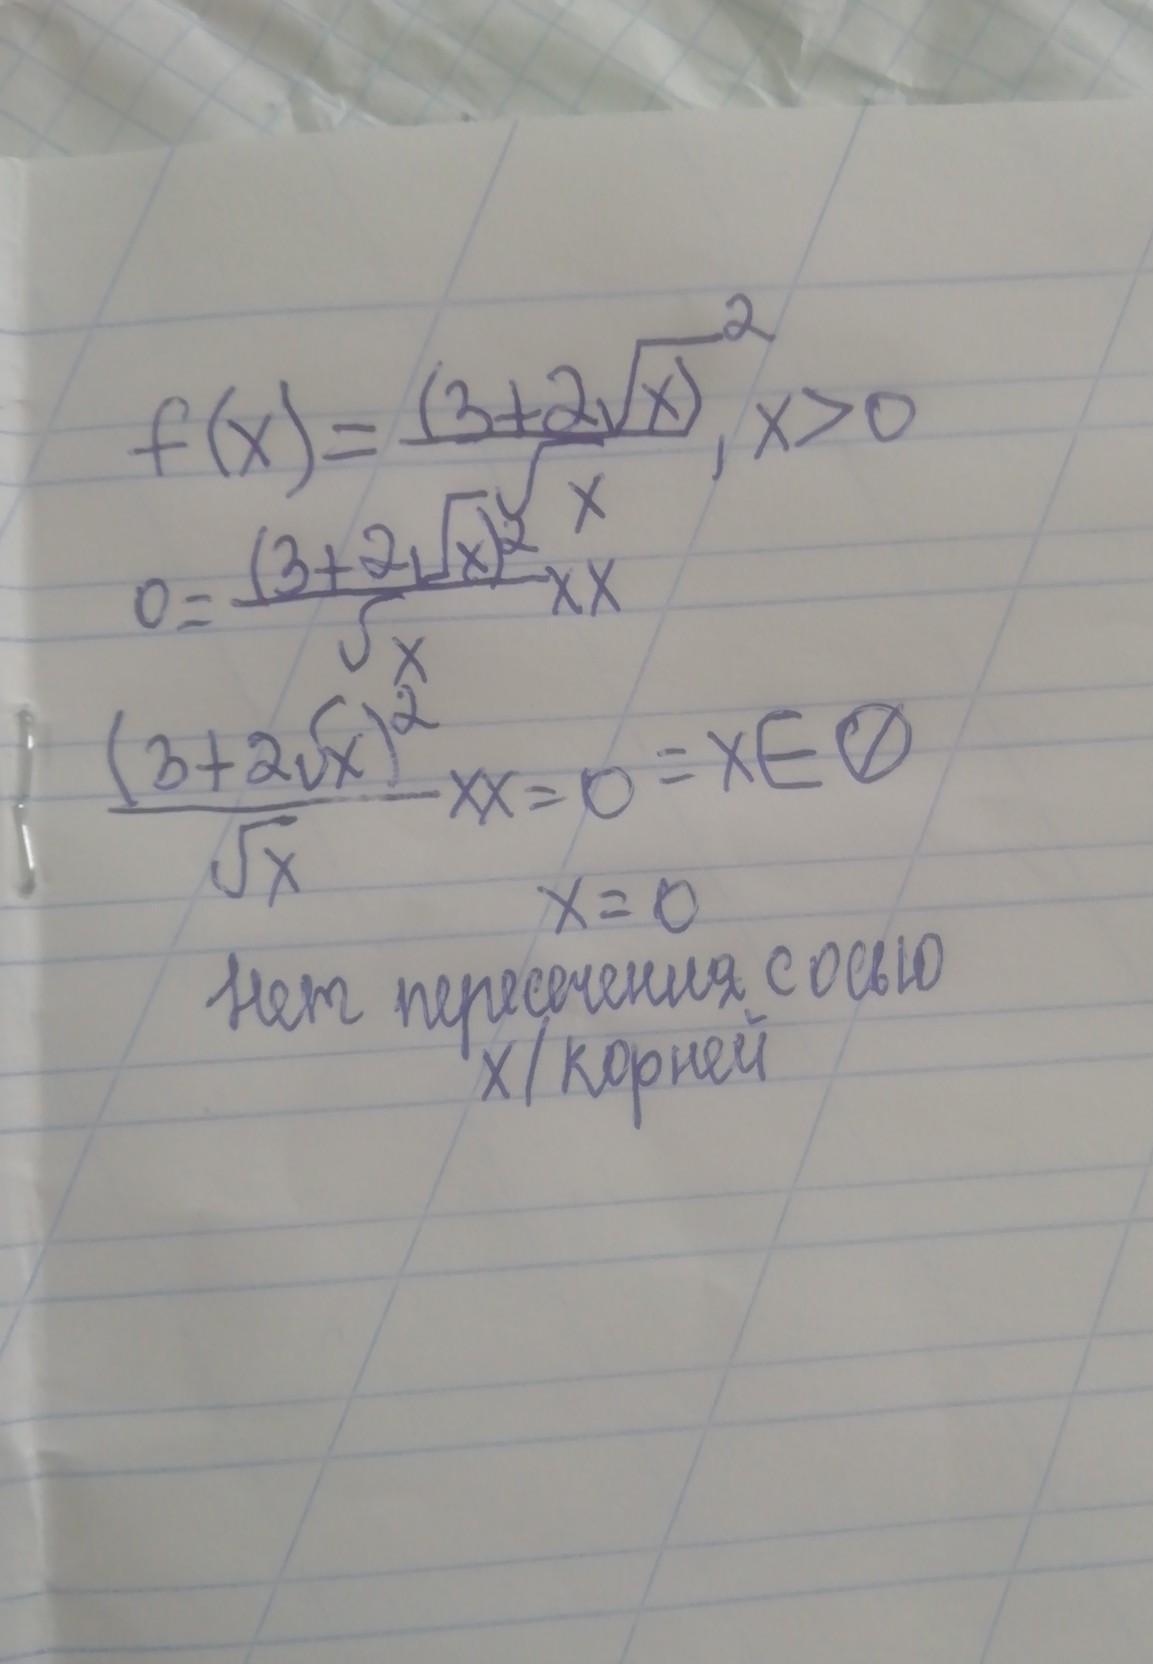 f(x) = (3+2√x)² / √x, x>0
0 = (3+2√x)² / √x xx
(3+2√x)² / √x xx = 0 = x∈∅
x = 0
Нет пересечения с осью
x/корней